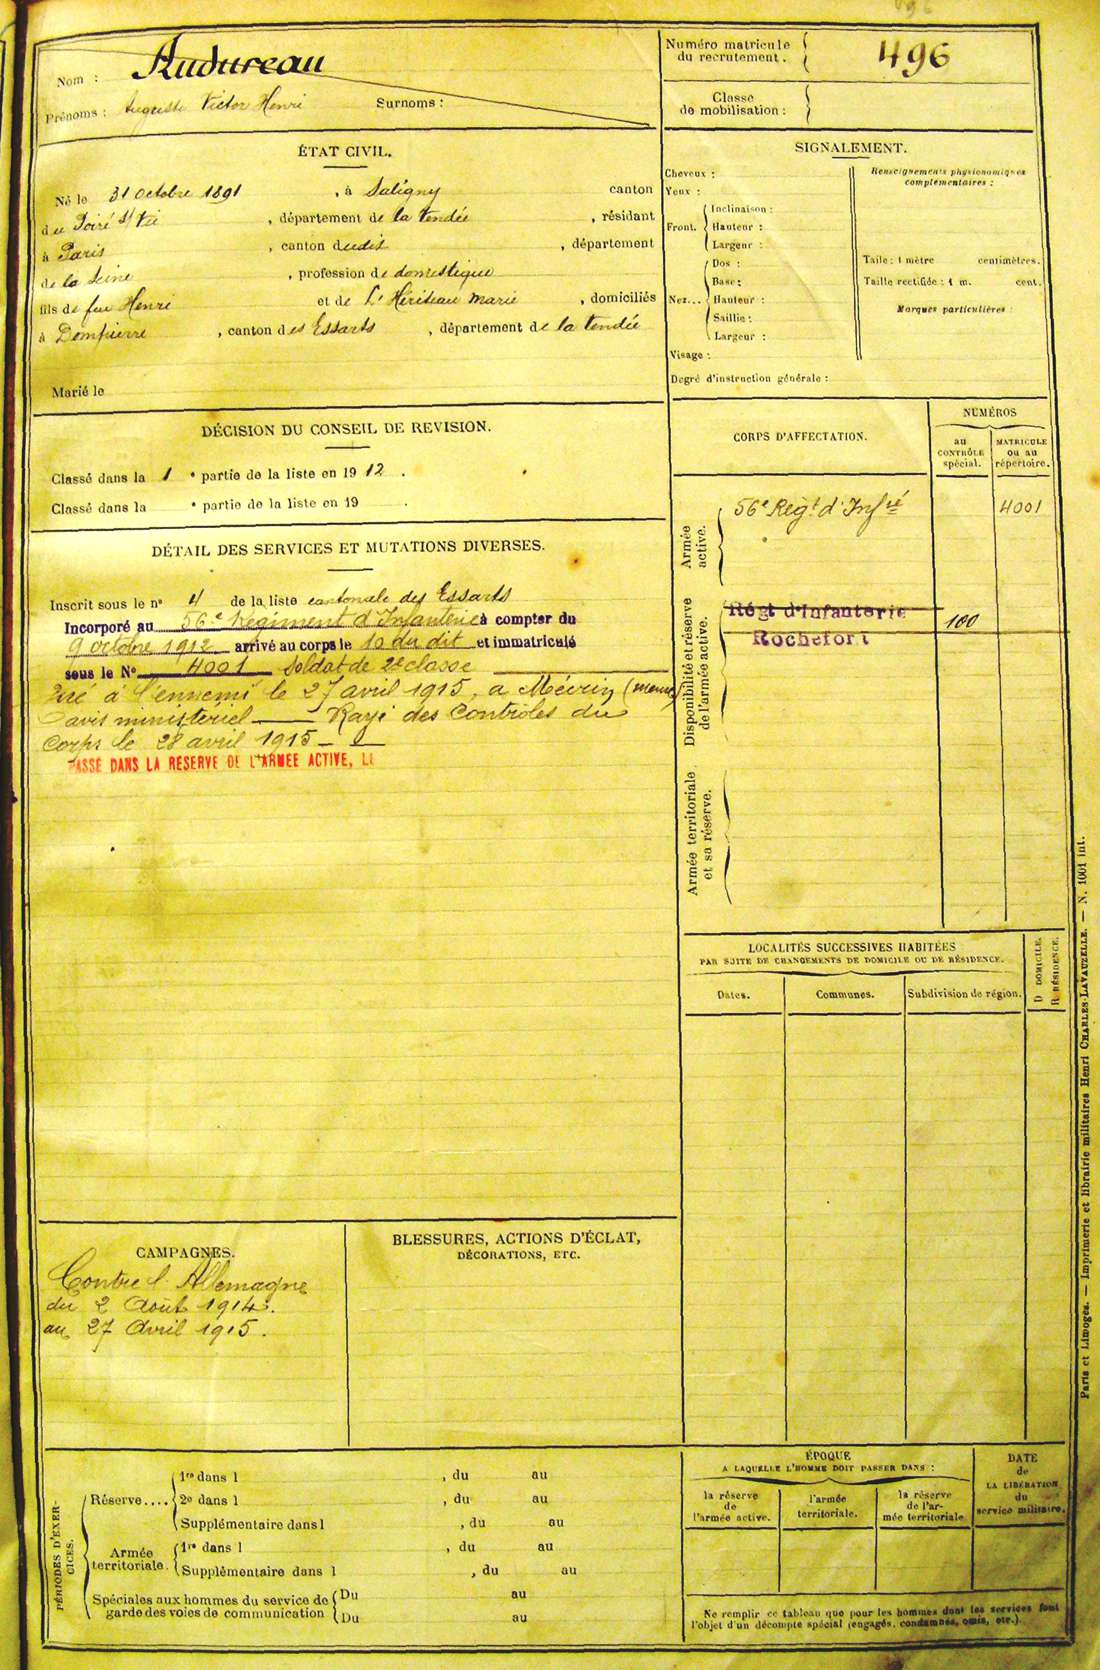 Nom : Audureau
Prénoms : Auguste Victor Henri Surnoms :
Numéro matricule du recrutement. 496
Classe de mobilisation :
ÉTAT CIVIL.
Né le 31 octobre 1891, à Saligny canton
du Poiré s/ Vie, département de la Vendée, résidant
à Paris, canton dudit, département
de la Seine, profession de domestique
fils de feu Henri et de L'Hériteau Marie, domiciliés
à Dompierre, canton des Essarts, département de la Vendée
Marié le
SIGNALEMENT.
Cheveux :
Yeux :
Front. Inclinaison :
Hauteur :
Largeur :
Nez... Dos :
Base :
Hauteur :
Saillie :
Largeur :
Visage :
Degré d'instruction générale :
Renseignements physionomiques complémentaires :
Taille : 1 mètre centimètres.
Taille rectifiée : 1 m. cent.
Marques particulières :
DÉCISION DU CONSEIL DE REVISION.
Classé dans la 1 e partie de la liste en 1912.
Classé dans la e partie de la liste en 19
DÉTAIL DES SERVICES ET MUTATIONS DIVERSES.
Inscrit sous le n° 4 de la liste cantonale des Essarts
Incorporé au 56e Régiment d'Infanterie à compter du
9 octobre 1912 arrivé au corps le 10 du dit et immatriculé
sous le N° 4001 Soldat de 2e classe
Tué à l'ennemi le 27 avril 1915, à Mécrin (meuse)
avis ministériel — Rayé des contrôles du
Corps le 28 avril 1915 —
PASSÉ DANS LA RÉSERVE DE L'ARMÉE ACTIVE, LE
CORPS D'AFFECTATION.
NUMÉROS
au CONTRÔLE spécial.
MATRICULE ou au répertoire.
Armée active.
56e Régt d'Infie 4001
Disponibilité et réserve de l'armée active.
Régt d'Infanterie 100
Rochefort
Armée territoriale et sa réserve.
LOCALITÉS SUCCESSIVES HABITÉES
PAR SUITE DE CHANGEMENTS DE DOMICILE OU DE RÉSIDENCE.
Dates. Communes. Subdivision de région.
D DOMICILE.
R RÉSIDENCE.
CAMPAGNES.
Contre l'Allemagne
du 2 Août 1914.
au 27 Avril 1915.
BLESSURES, ACTIONS D'ÉCLAT,
DÉCORATIONS, ETC.
PÉRIODES D'EXERCICES.
Réserve.... 1re dans l , du au
2e dans l , du au
Supplémentaire dans l , du au
Armée territoriale. 1re dans l , du au
Supplémentaire dans l , du au
Spéciales aux hommes du service de garde des voies de communication Du au
Du au
ÉPOQUE
A LAQUELLE L'HOMME DOIT PASSER DANS :
la réserve de l'armée active.
l'armée territoriale.
la réserve de l'armée territoriale
DATE de LA LIBÉRATION du service militaire.
Ne remplir ce tableau que pour les hommes dont les services font
l'objet d'un décompte spécial (engagés, condamnés, omis, etc.).
Paris et Limoges. — Imprimerie et librairie militaires Henri CHARLES-LAVAUZELLE. — N. 1001 int.